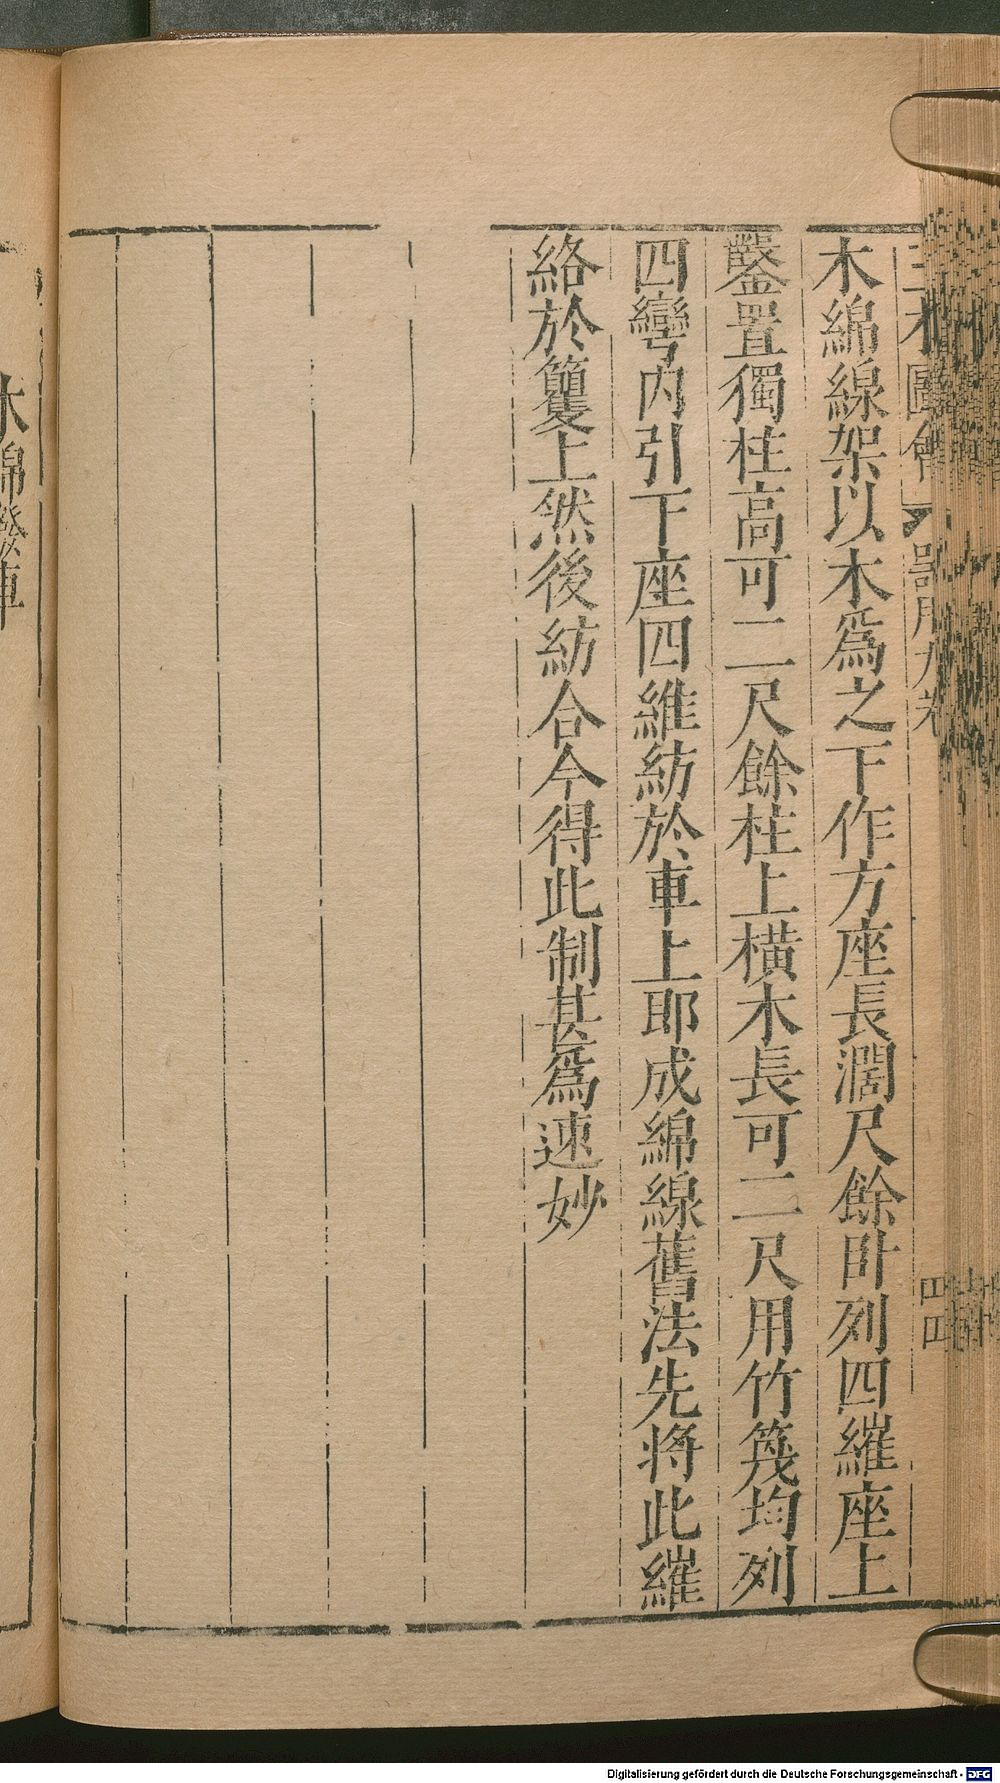 木綿線架以木爲之下作方座長濶尺餘卧列四維座上
鑿置獨柱高可二尺餘柱上橫木長可二尺用竹篾均列
四彎內引下座四維紡於車上耶成綿線舊法先將此維
絡於籰上然後紡合今得此制甚爲速妙
圖會
器用九卷
四四
木綿撥車
Digitalisierung gefördert durch die Deutsche Forschungsgemeinschaft - DFG